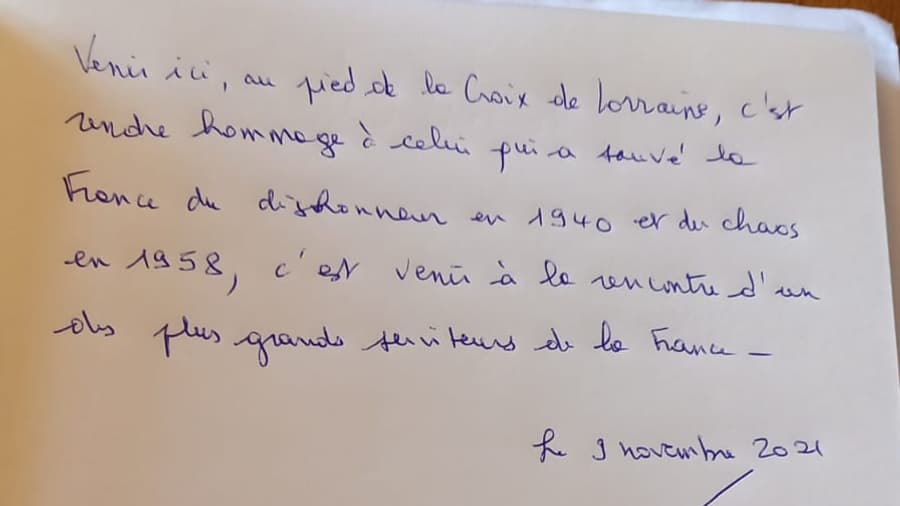 Venir ici, au pied de la Croix de Lorraine, c'est
rendre hommage à celui qui a sauvé la
France du dishonneur en 1940 et du chaos
en 1958, c'est venir à la rencontre d'un
des plus grands serviteurs de la France –
Le 9 novembre 2021